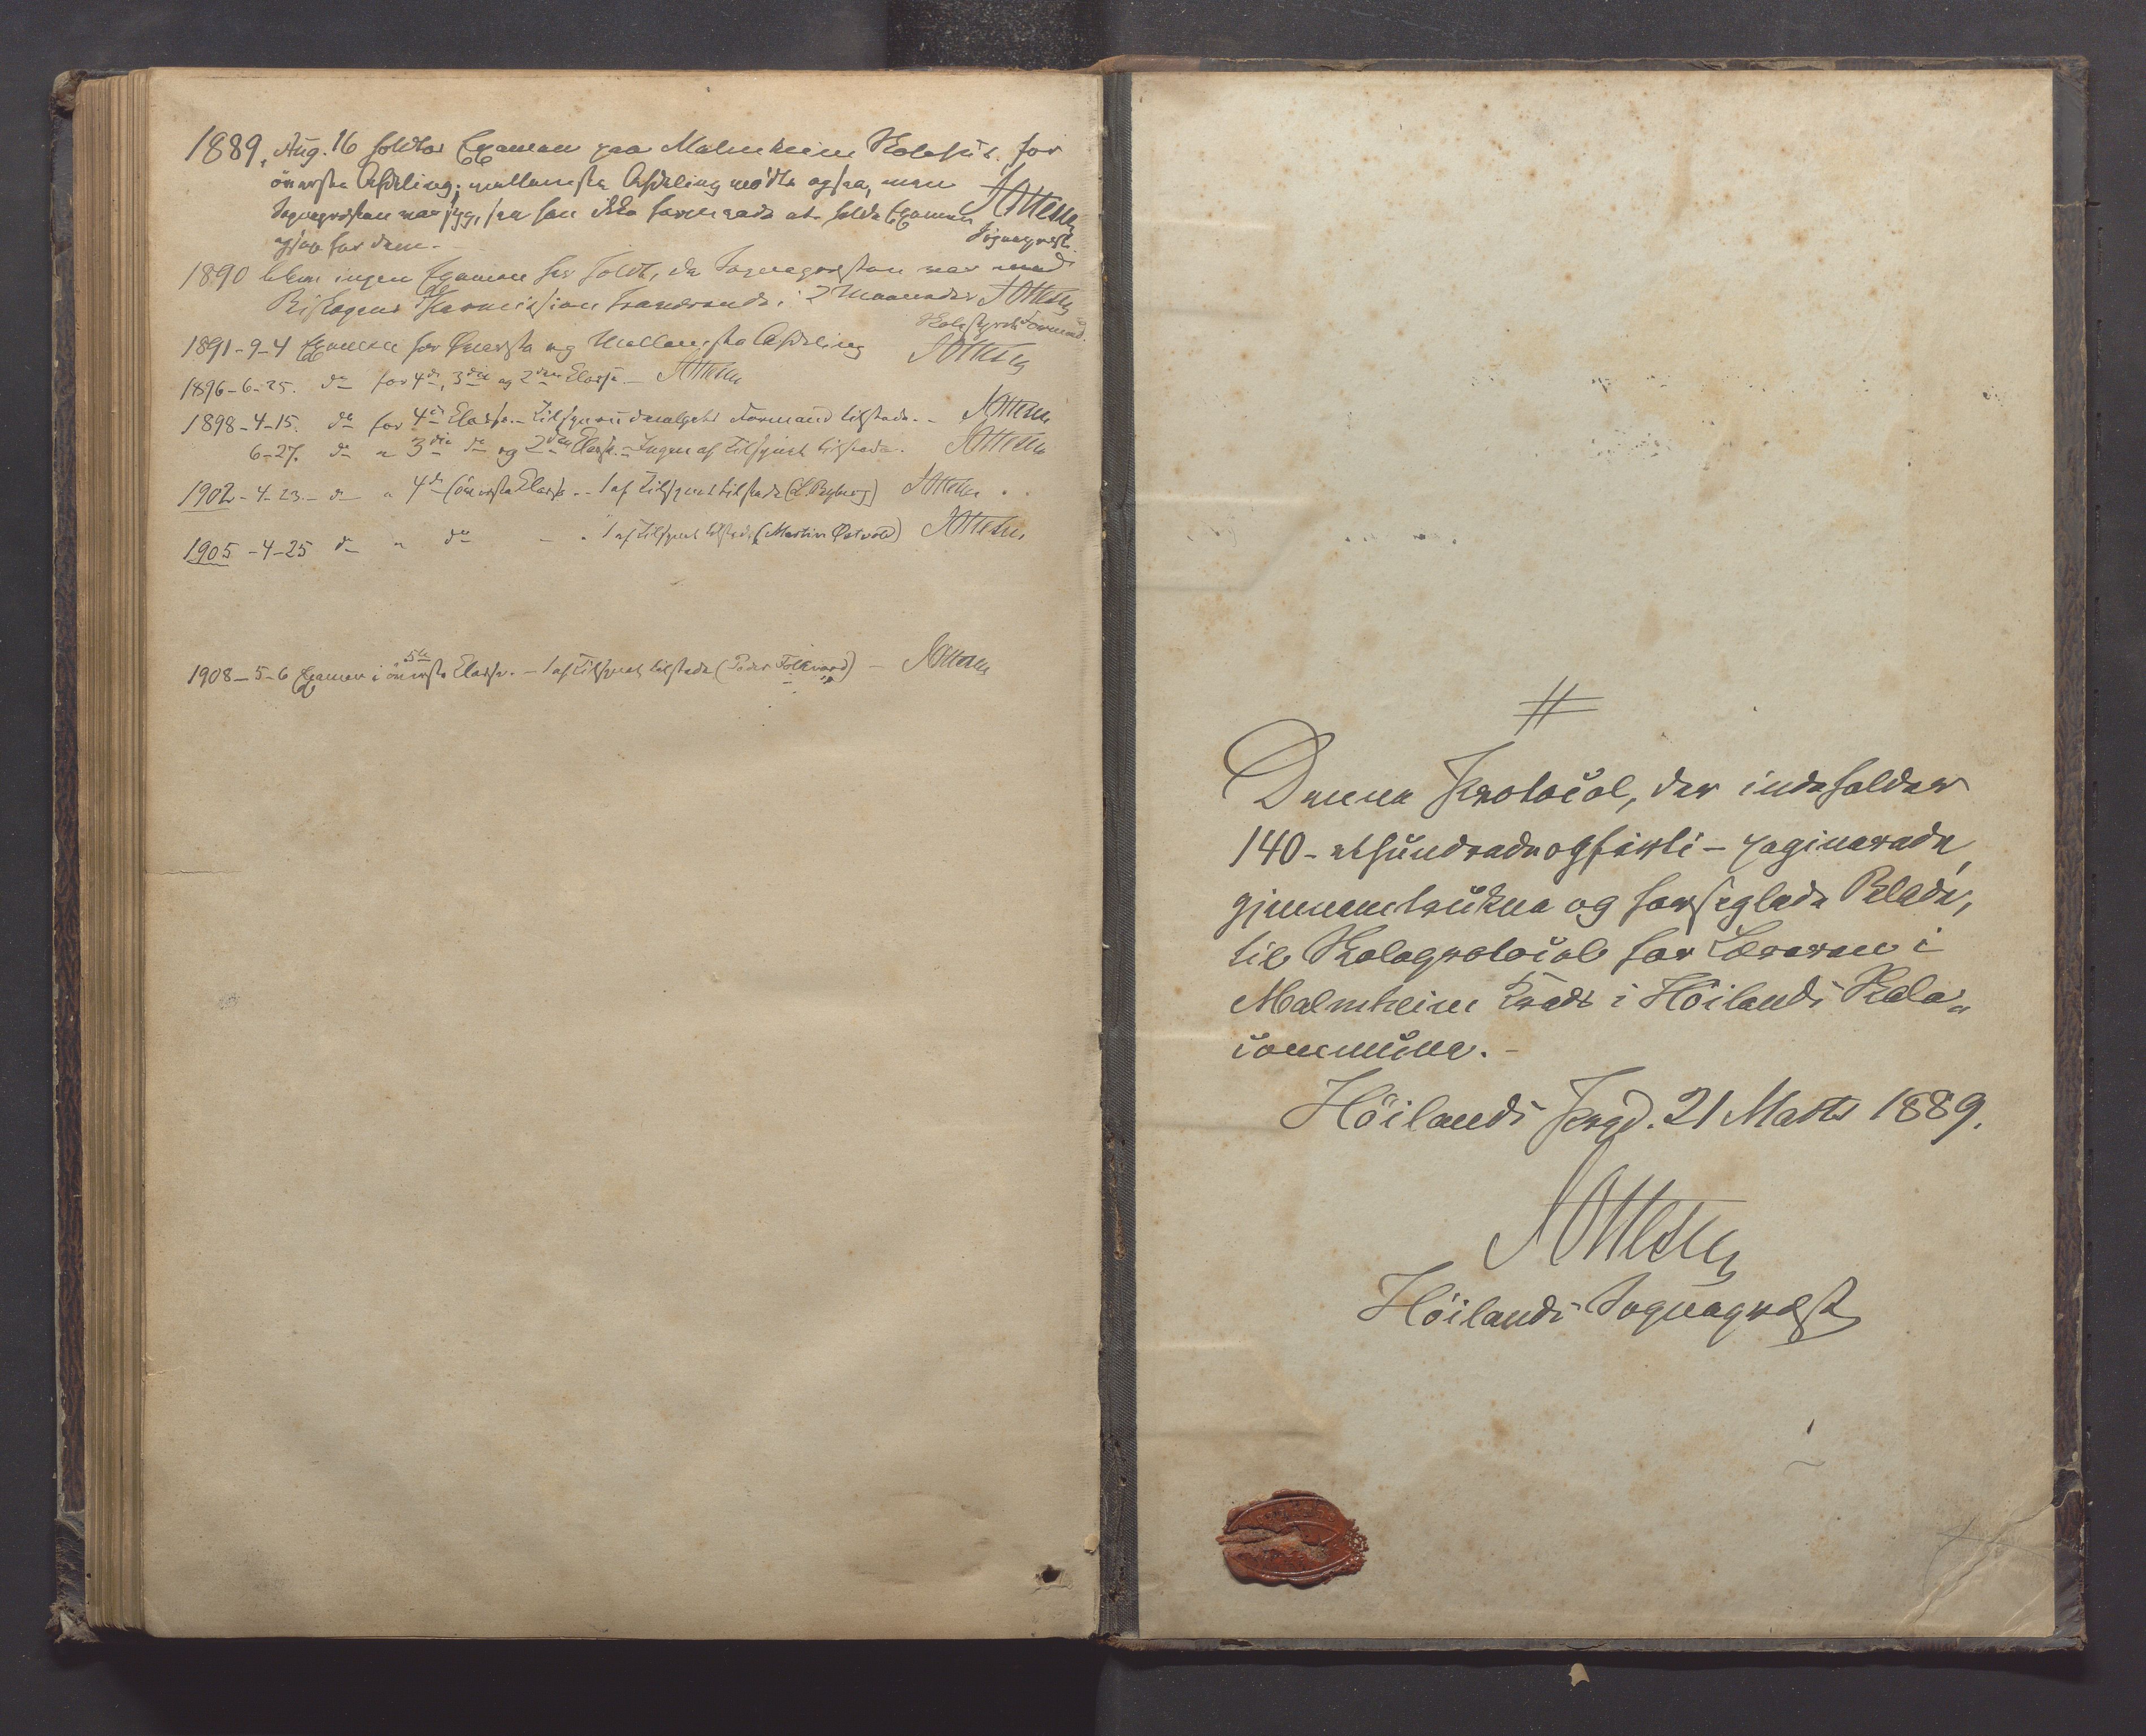 1889, Aug. 16 holdtes Examen paa Malmheim Skolehus for
överste Afdeling; mellemste Afdeling mödte ogsaa, men
Sognepræsten var syg, saa han ikke formaaede at holde Examen
ogsaa for dem. -
JOttesen
Sognepræst.
1890 blev ingen Examen her holdt, da Sognepræsten var med
Biskopens Permission fraværende i 2 Maaneder JOttesen
Skolestyrets Formand.
1891-9-4 Examen for Överste og Mellemste Afdeling JOttesen
1896-6-25. do for 4de, 3die og 2den Classe - JOttesen
1898-4-15. do for 4de Classe. - Tilsynsudvalgets Formand tilstede. - JOttesen
6-27. do " 3die do og 2den Classe. - Ingen af Tilsynet tilstede. JOttesen
1902-4-23 - do " 4de (överste Classe. - 1 af Tilsynet tilstede (L. Byberg) JOttesen
1905-4-25 do " do - " 1 af Tilsynet tilstede (Martin Østvold) JOttesen
1908-5-6 Examen i 5te överste Classe. - 1 af Tilsynet tilstede (Peder Folkvord) - JOttesen
#
Denne Protocol, der indeholder
140 - ethundredeogfirti - paginerede,
gjennemtrukne og forseglede Blade,
til Skoleprotocol for Læreren i
Malmheim Kreds i Höilands Skole-
commune. -
Höilands Prgd. 21 Marts 1889.
JOttesen
Höilands Sognepræst